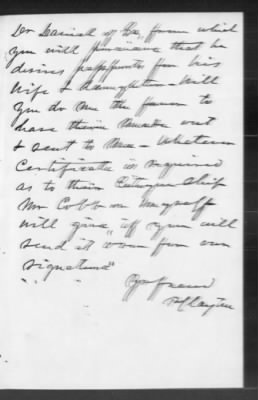 Dr Daniel of Ga, from which
you will perceive that he
desires passports for his
Wife & daughter – Will
you do me the favor to
have them made out
& sent to me – Whatever
Certificate is required
as to their Citizenship
Mr Cobb or myself
will give, if you will
send it over for our
signatures"
Yr friend
Clayton